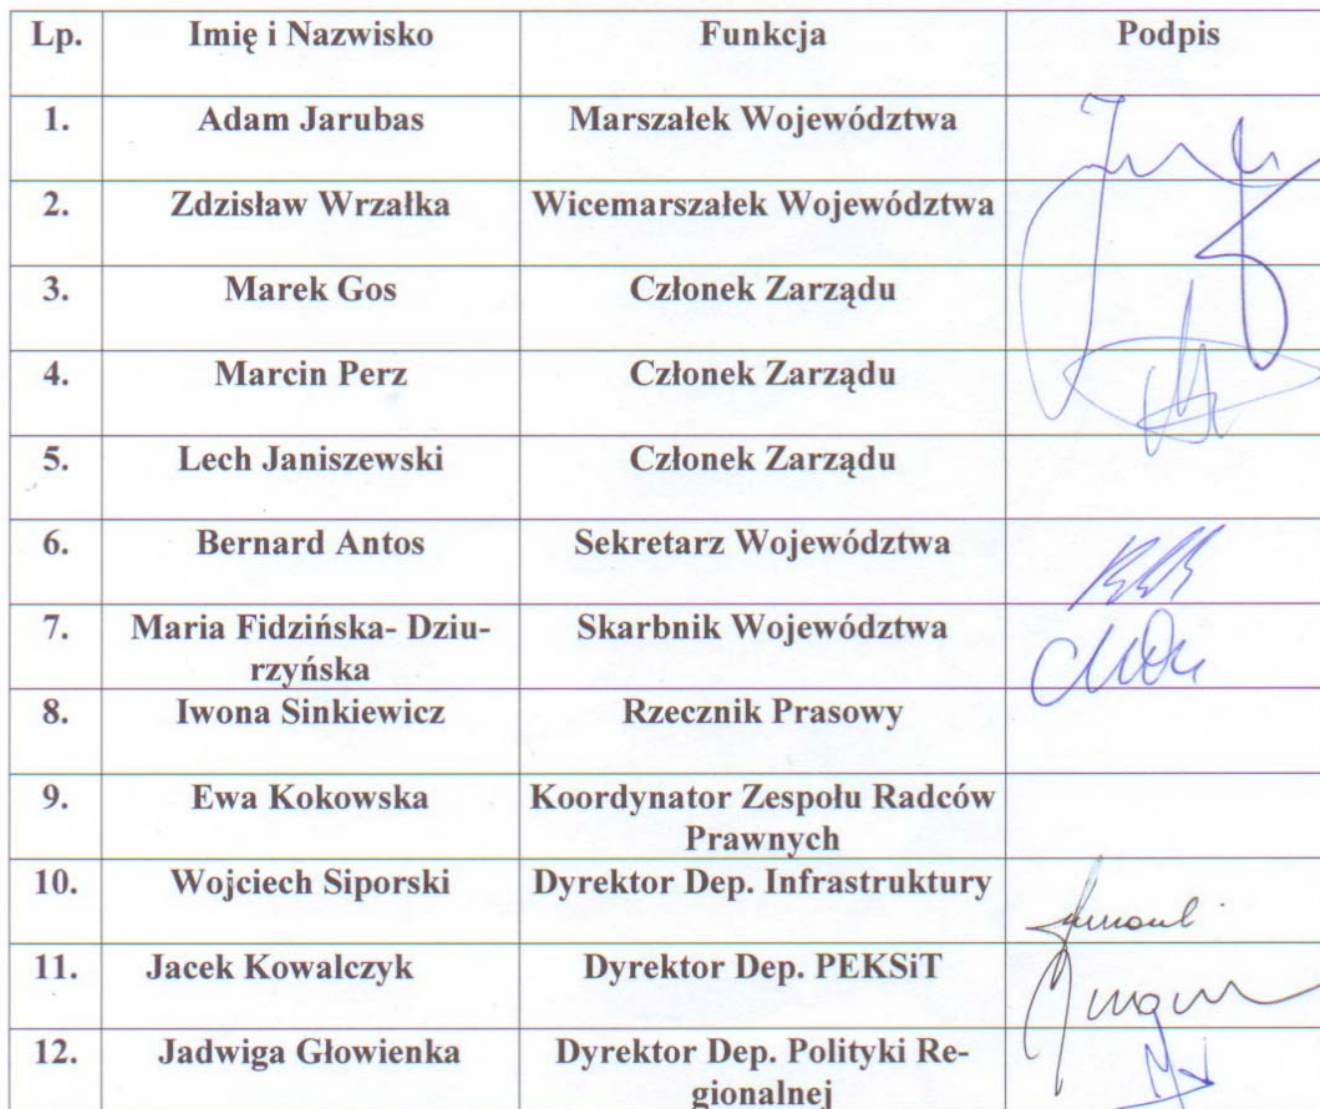 Lp. Imię i Nazwisko Funkcja Podpis
1. Adam Jarubas Marszałek Województwa
2. Zdzisław Wrzałka Wicemarszałek Województwa
3. Marek Gos Członek Zarządu
4. Marcin Perz Członek Zarządu
5. Lech Janiszewski Członek Zarządu
6. Bernard Antos Sekretarz Województwa
7. Maria Fidzińska- Dziu- Skarbnik Województwa
rzyńska
8. Iwona Sinkiewicz Rzecznik Prasowy
9. Ewa Kokowska Koordynator Zespołu Radców
Prawnych
10. Wojciech Siporski Dyrektor Dep. Infrastruktury
11. Jacek Kowalczyk Dyrektor Dep. PEKSiT
12. Jadwiga Głowienka Dyrektor Dep. Polityki Re-
gionalnej